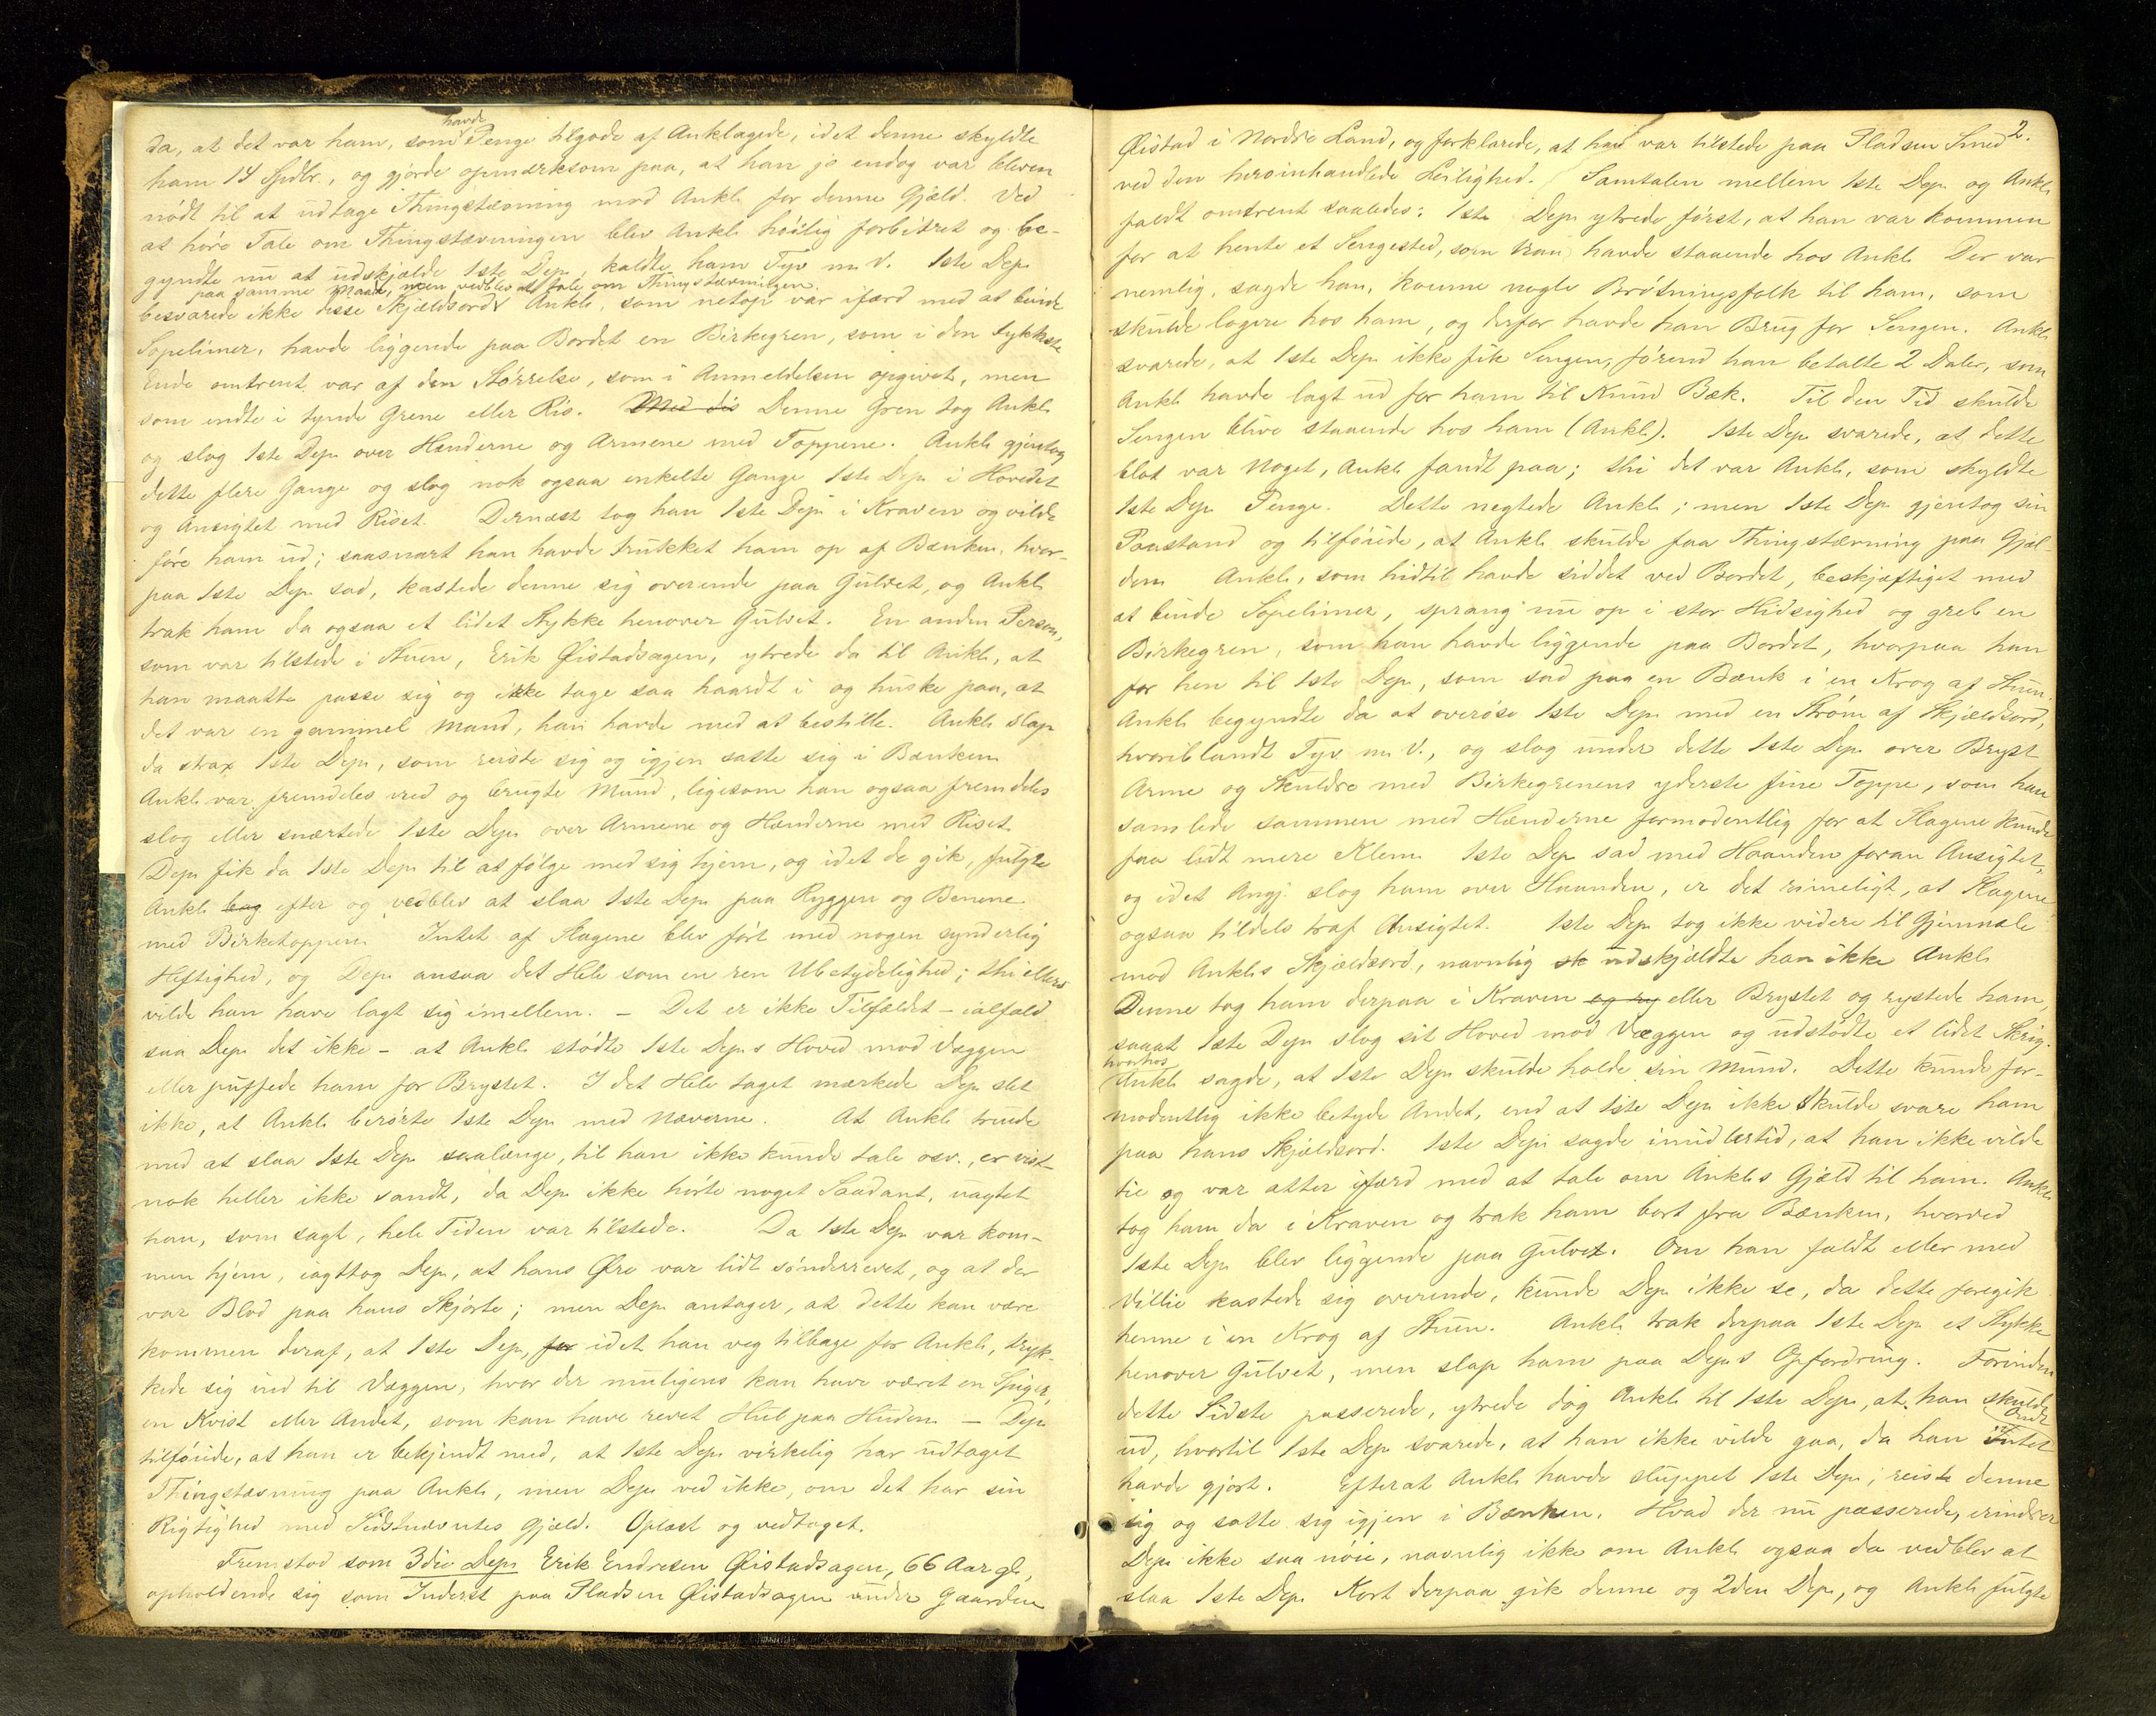 da, at det var ham, som havde Penge tilgode af Anklagede, idet denne skyldte
ham 14 Spdlr., og gjorde opmærksom paa, at han jo endog var bleven
nödt til at udtage Thingstævning mod Ankl. for denne Gjæld. Ved
at höre Tale om Thingstævningen blev Ankl. höilig forbitret og be-
gyndte nu at udskjælde 1ste Dep., kaldte ham Tyv m. V. 1ste Dep.
paa samme Maade, men vedblev at tale om Thingstævningen.
besvarede ikke disse Skjældsord Ankl., som netop var ifærd med at binde
Sopelimer, havde liggende paa Bordet en Birkegren, som i den tykkeste
Ende omtrent var af den Störrelse, som i Anmeldelsen opgivet, men
som endte i tynde Grene eller Ris. Med dis Denne Gren tog Ankl.
og slog 1ste Dep. over Hænderne og Armene med Toppene. Ankl. gjentog
dette flere Gange og slog nok ogsaa enkelte Gange 1ste Dep. i Hovedet
og Ansigtet med Riset. Dernæst tog han 1ste Dep. i Kraven og vilde
före ham ud; saasnart han havde trukket ham op af Bænken, hvor-
paa 1ste Dep. sad, kastede denne sig overende paa Gulvet, og Ankl.
trak ham da ogsaa et lidet Stykke henover Gulvet. En anden Person,
som var tilstede i Stuen, Erik Øistadsagen, ytrede da til Ankl., at
han maatte passe sig og ikke tage saa haardt i og huske paa, at
det var en gammel Mand, han havde med at bestille. Ankl. slap
da strax 1ste Dep., som reiste sig og igjen satte sig i Bænken
Ankl. var fremdeles vred og brugte Mund, ligesom han ogsaa fremdeles
slog eller snærtede 1ste Dep. over Armene og Hænderne med Riset.
Dep. fik da 1ste Dep. til at fölge med sig hjem, og idet de gik, fulgte
Ankl. bag efter og vedblev at slaa 1ste Dep. paa Ryggen og Benene
med Birketoppen. Intet af Slagene blev fört med nogen synderlig
Heftighed, og Dep. ansaa det Hele som en ren Ubetydelighed; thi ellers
vilde han have lagt sig imellem. – Det er ikke Tilfældet – ialfald
saa Dep. det ikke – at Ankl. stödte 1ste Dep.s Hoved mod Væggen
eller puffede ham for Brystet. I det Hele taget mærkede Dep. slet
ikke, at Ankl. berörte 1ste Dep. med Næverne. At Ankl. truede
med at slaa 1ste Dep. saalænge, til han ikke kunde tale osv., er vist-
nok heller ikke sandt, da Dep. ikke hörte noget Saadant, uagtet
han, som sagt, hele Tiden var tilstede. Da 1ste Dep. var kom-
men hjem, iagttog Dep., at hans Øre var lidt sönderrevet, og at der
var Blod paa hans Skjorte; men Dep. antager, at dette kan være
kommen deraf, at 1ste Dep., for idet han veg tilbage for Ankl., tryk-
kede sig ind til Væggen, hvor der muligens kan have været en Spiger,
en Kvist eller Andet, som kan have revet Hul paa Huden. – Dep.
tilföiede, at han er bekjendt med, at 1ste Dep. virkelig har udtaget
Thingstævning paa Ankl., men Dep. ved ikke, om det har sin
Rigtighed med Sidstnævntes Gjæld. Oplæst og vedtaget.
Fremstod som 3die Dep. Erik Endresen Øistadsagen, 66 Aar gl.,
opholdende sig som Inderst paa Pladsen Øistadsagen under Gaarden
2.
Øistad i Nordre Land, og forklarede, at han var tilstede paa Pladsen Smed
ved den heroinhandlede Leilighed. Samtalen mellem 1ste Dep. og Ankl.
faldt omtrent saaledes: 1ste Dep. ytrede först, at han var kommen
for at hente et Sengested, som han havde staaende hos Ankl. Der var
nemlig, sagde han, komne nogle Brötningsfolk til ham, som
skulde logere hos ham, og derfor havde han Brug for Sengen. Ankl.
svarede, at 1ste Dep. ikke fik Sengen, förend han betalte 2 Daler, som
Ankl. havde lagt ud for ham til Knud Bæk. Til den Tid skulde
Sengen blive staaende hos ham (Ankl.). 1ste Dep. svarede, at dette
blot var Noget, Ankl. fandt paa; thi det var Ankl., som skyldte
1ste Dep. Penge. Dette negtede Ankl.; men 1ste Dep. gjentog sin
Paastand og tilföiede, at Ankl. skulde faa Thingstævning paa Gjæl-
den. Ankl., som hidtil havde siddet ved Bordet, beskjæftiget med
at binde Sopelimer, sprang nu op i stor Hidsighed og greb en
Birkegren, som han havde liggende paa Bordet, hvorpaa han
for hen til 1ste Dep., som sad paa en Bænk i en Krog af Stuen.
Ankl. begyndte da at overöse 1ste Dep. med en Ström af Skjældsord,
hvoriblandt Tyv m. V., og slog under dette 1ste Dep. over Bryst
Arme og Skuldre med Birkegrenens yderste fine Toppe, som han
samlede sammen med Hænderne formodentlig for at Slagene kunde
faa lidt mere Klem. 1ste Dep. sad med Haanden foran Ansigtet,
og idet Angj. slog ham over Haanden, er det rimeligt, at Slagene
ogsaa tildels traf Ansigtet. 1ste Dep. tog ikke videre til Gjenmæle
mod Ankl.s Skjældsord, navnlig sk udskjældte han ikke Ankl.
Denne tog ham derpaa i Kraven og ry eller Brystet og rystede ham,
saaat 1ste Dep. slog sit Hoved mod Væggen og udstödte et lidet Skrig.
hvorhos
Ankl. sagde, at 1ste Dep. skulde holde sin Mund. Dette kunde for-
modentlig ikke betyde Andet, end at 1ste Dep. ikke skulde svare ham
paa hans Skjældsord. 1ste Dep. sagde imidlertid, at han ikke vilde
tie og var atter ifærd med at tale om Ankl.s Gjæld til ham. Ankl.
tog ham da i Kraven og trak ham bort fra Bænken, hvorved
1ste Dep. blev liggende paa Gulvet. Om han faldt eller med
Villie kastede sig overende, kunde Dep. ikke se, da dette foregik
henne i en Krog af Stuen. Ankl. trak derpaa 1ste Dep. et Stykke
henover Gulvet, men slap ham paa Dep.s Opfordring. Forinden
dette Sidste passerede, ytrede dog Ankl. til 1ste Dep., at han skulde
ud, hvortil 1ste Dep. svarede, at han ikke vilde gaa, da han Intet
havde gjort. Efterat Ankl. havde sluppet 1ste Dep., reiste denne
sig og satte sig igjen i Bænken. Hvad der nu passerede, erindrer
Dep. ikke saa nöie, navnlig ikke om Ankl. ogsaa da vedblev at
slaa 1ste Dep. Kort derpaa gik denne og 2den Dep., og Ankl. fulgte